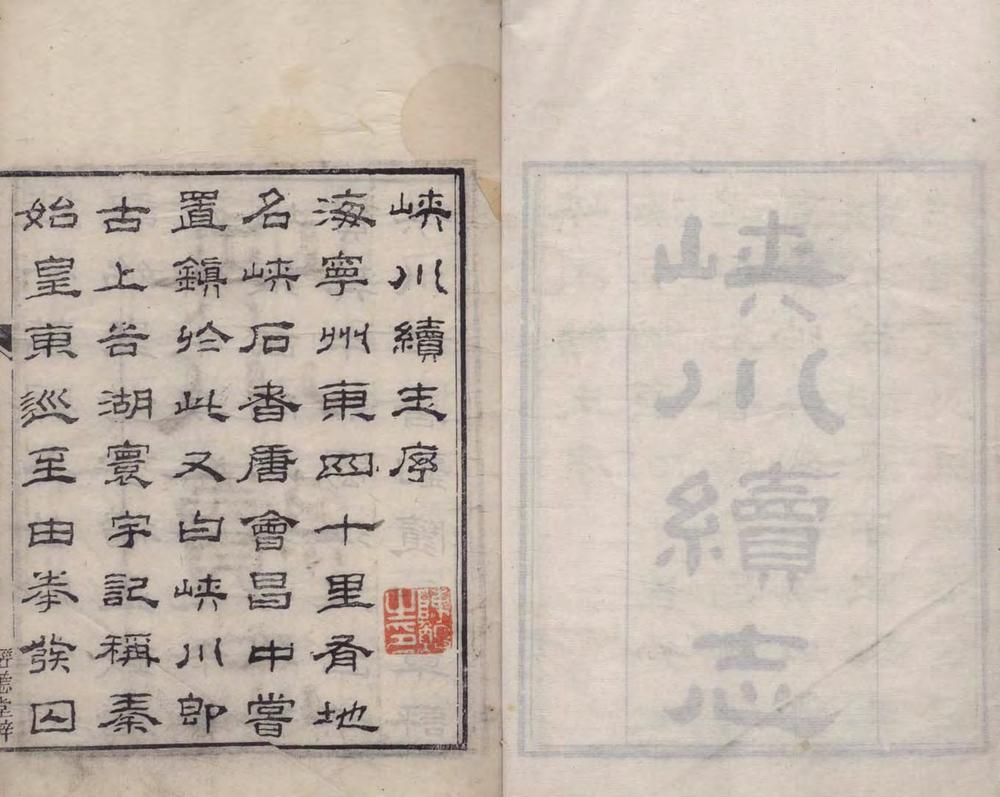 峽川續志
峽川續志序
海寧州東四十里有地
名峽石者唐會昌中嘗
置鎮於此又曰峽川即
古上谷湖寰宇記稱秦
始皇東巡至由拳發囚